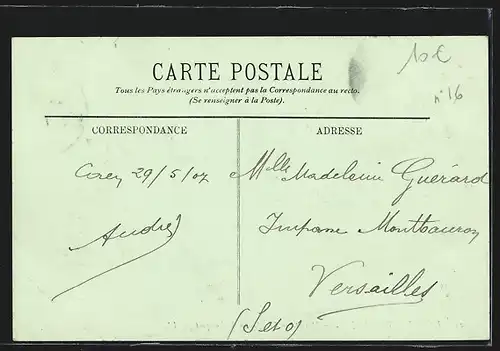 10€
n°16
CARTE POSTALE
Tous les Pays étrangers n'acceptent pas la Correspondance au recto.
(Se renseigner à la Poste).
CORRESPONDANCE
ADRESSE
29/5/07
André
Mlle Madeleine Guérard
Impasse Montbauron
Versailles
(S et O)